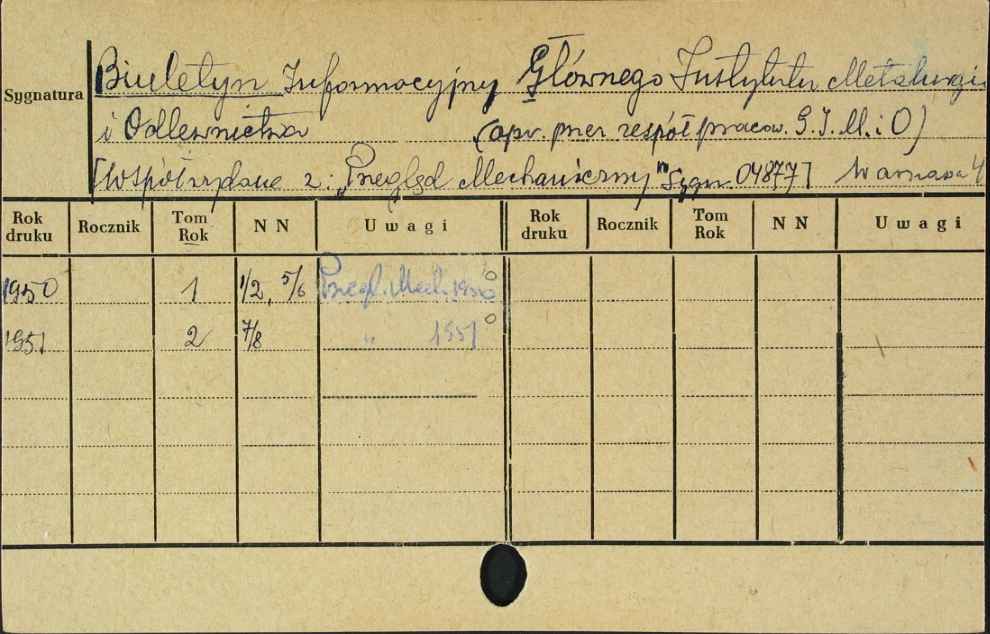 Sygnatura
Biuletyn Informacyjny Głównego Instytutu Metalurgii
i Odlewnictwa (opr. przez zespół pracow. G.I.M. i O)
[Współwydane z: „Przegląd Mechaniczny" Sygn. 04877] Warszawa 4
Rok druku Rocznik Tom Rok N N Uwagi Rok druku Rocznik Tom Rok N N Uwagi
1950 1 1/2, 5/6 Przegl. Mech. 1950
1951 2 7/8 „ 1951